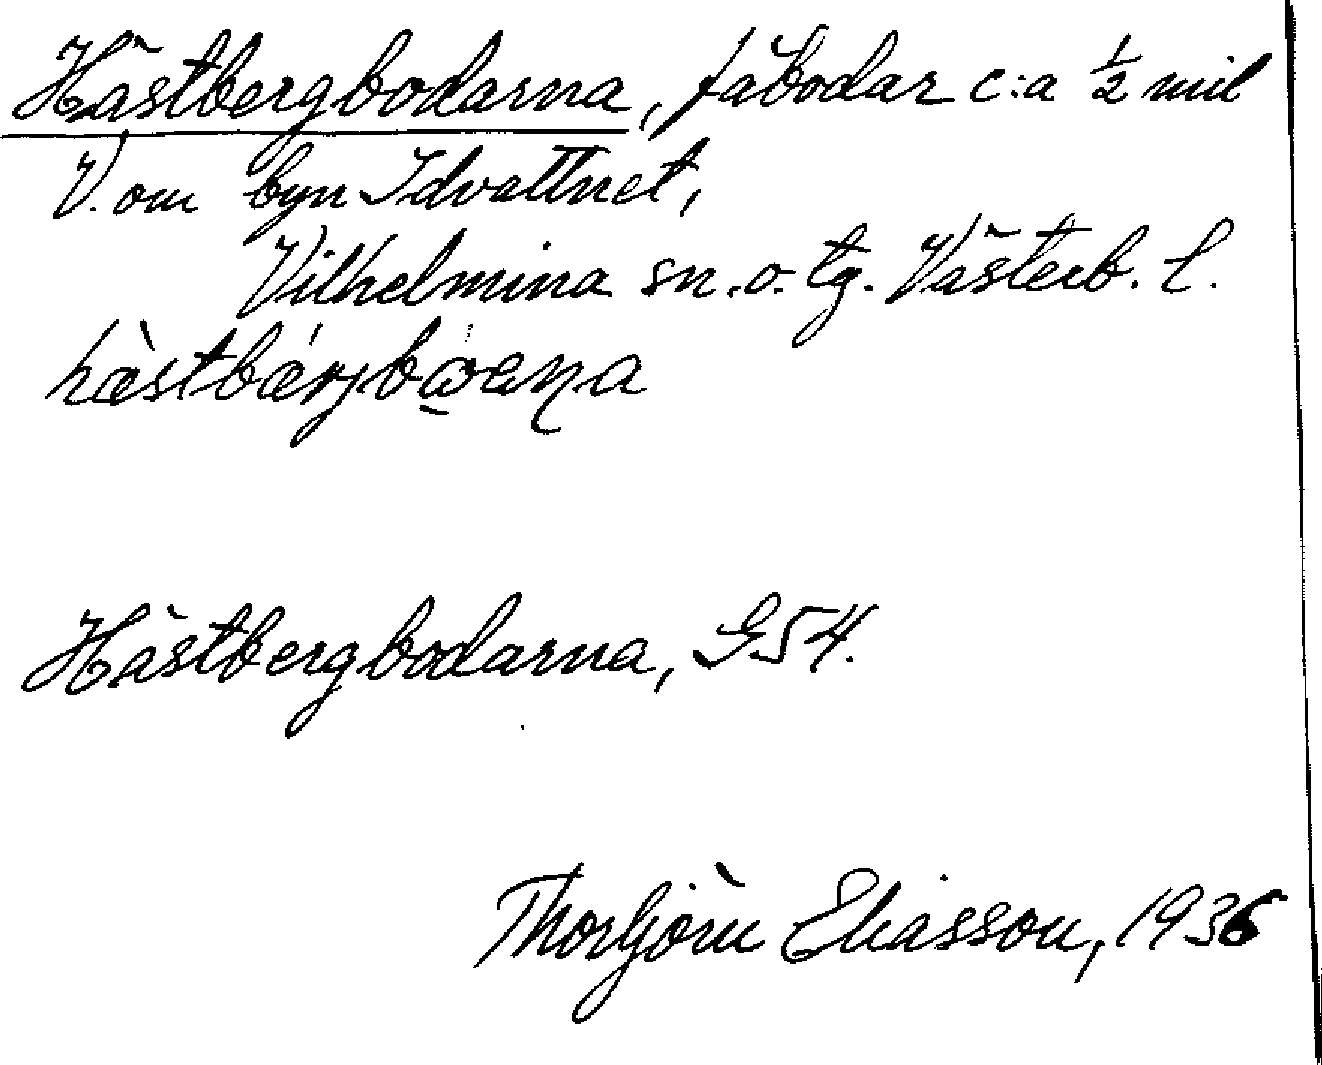 Hästbergbodarna, fäbodar c:a ½ mil
V. om byn Idvattnet,
Vilhelmina sn. o. tg. Västerb. l.
hæ̀stbærjbωαɳa
Hästbergbodarna, G54.
Thorbjörn Eliasson, 1936